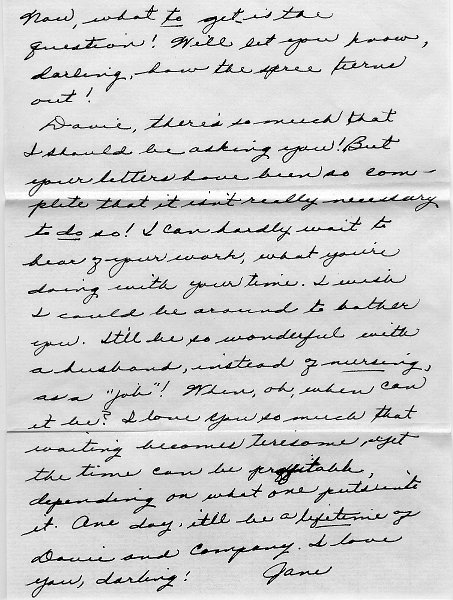 Now, what to get is the
question! Will let you know,
darling, how the spree turns
out!
Davie, there's so much that
I should be asking you! But
your letters have been so com-
plete that it isn't really necessary
to do so! I can hardly wait to
hear of your work, what you're
doing with your time. I wish
I could be around to bother
you. It'll be so wonderful with
a husband, instead of nursing,
as a "job"! When, oh, when can
it be? I love you so much that
waiting becomes tiresome, yet
the time can be profitable,
depending on what one puts into
it. One day, it'll be a lifetime of
Davie and company. I love
you, darling! Jane